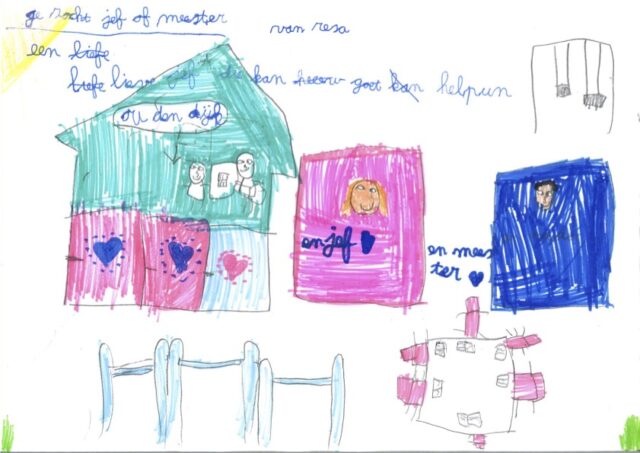 ge zocht jef of meester
van resa
een liefe
liefe lieve jef die kan heeuw goet kan helpun
ou den dijf
en jef
en mees
ter